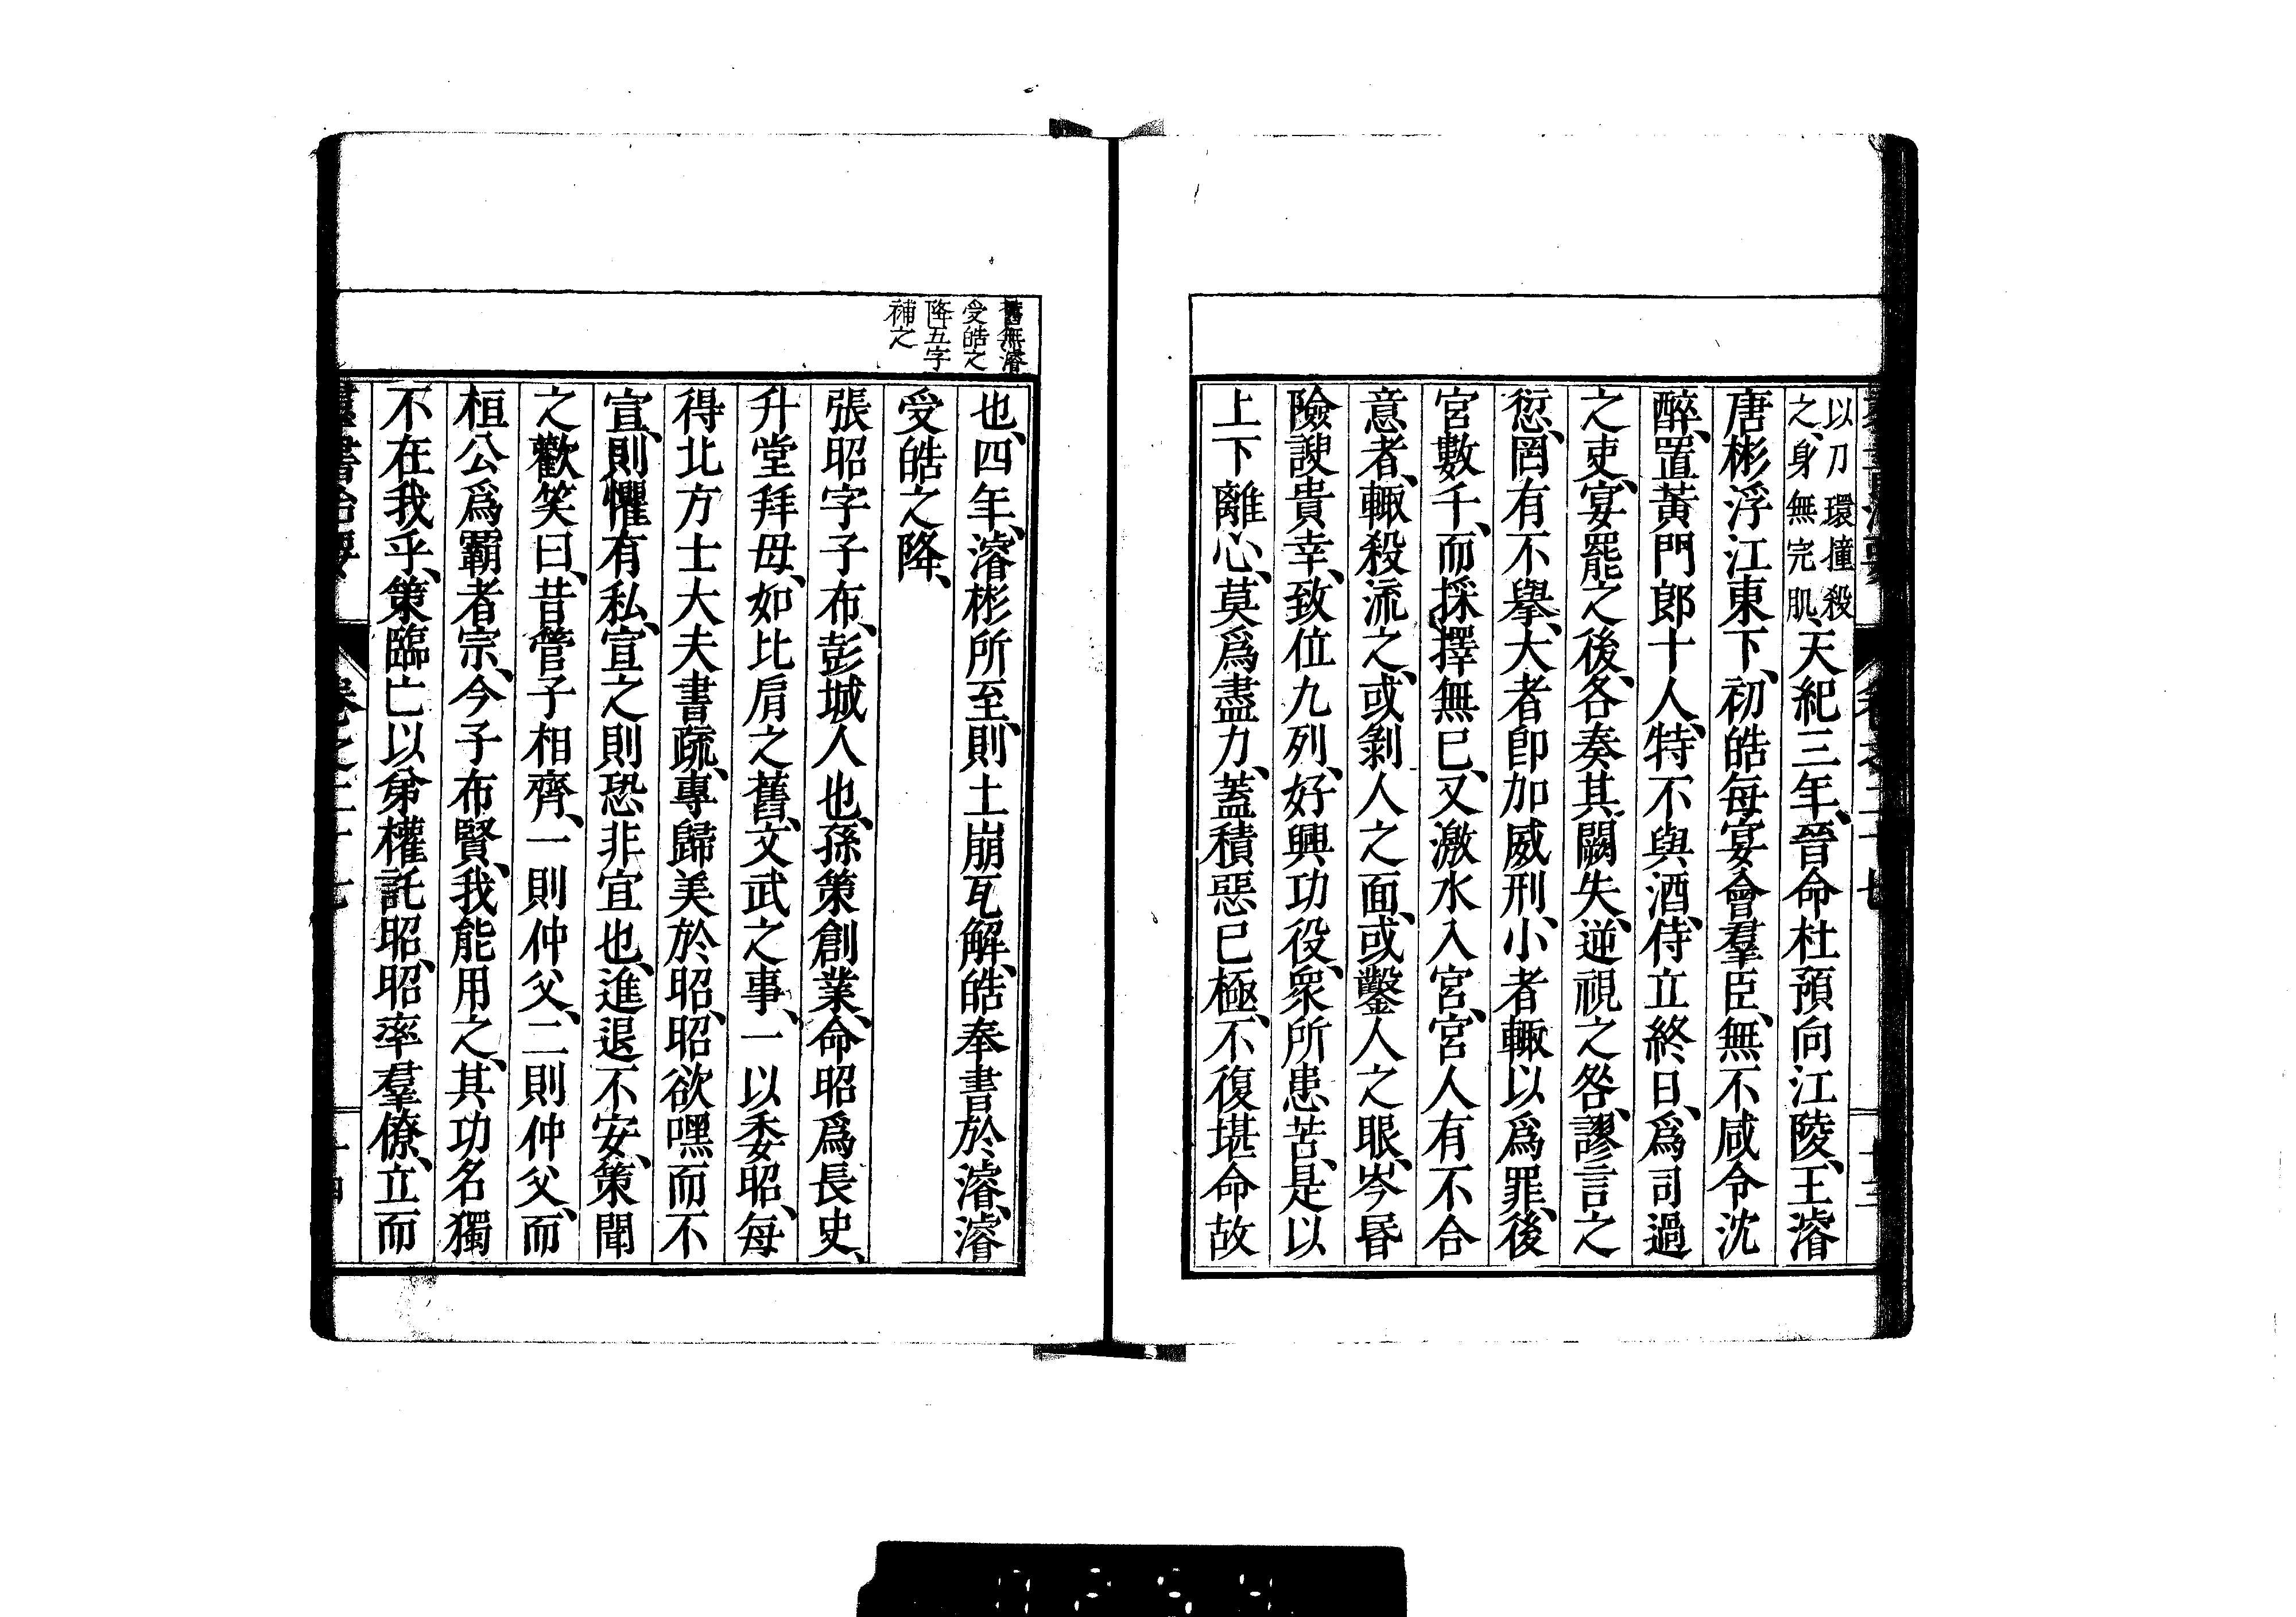 以刀環撞殺
之、身無完肌、天紀三年、晉命杜預向江陵、王濬
唐彬浮江東下、初皓每宴會羣臣、無不咸令沈
醉、置黃門郎十人、特不與酒、侍立終日、爲司過
之吏、宴罷之後、各奏其闕失、逆視之咎、謬言之
愆、罔有不擧、大者卽加威刑、小者輙以爲罪、後
宮數千、而採擇無已、又激水入宮、宮人有不合
意者、輙殺流之、或剝人之面、或鑿人之眼、岑昬
險諛貴幸、致位九列、好興功役、衆所患苦、是以
上下離心、莫爲盡力、蓋積惡已極、不復堪命故
舊無濬
受皓之
降五字
補之
也、四年、濬彬所至、則土崩瓦解、皓奉書於濬、濬
受皓之降、
張昭字子布、彭城人也、孫策創業、命昭爲長史、
升堂拜母、如比肩之舊、文武之事、一以委昭、每
得北方士大夫書疏、專歸美於昭、昭欲嘿而不
宣、則懼有私、宣之則恐非宜也、進退不安、策聞
之歡笑曰、昔管子相齊、一則仲父、二則仲父、而
桓公爲霸者宗、今子布賢、我能用之、其功名獨
不在我乎、策臨亡以弟權託昭、昭率羣僚、立而
羣書治要 卷之二十七